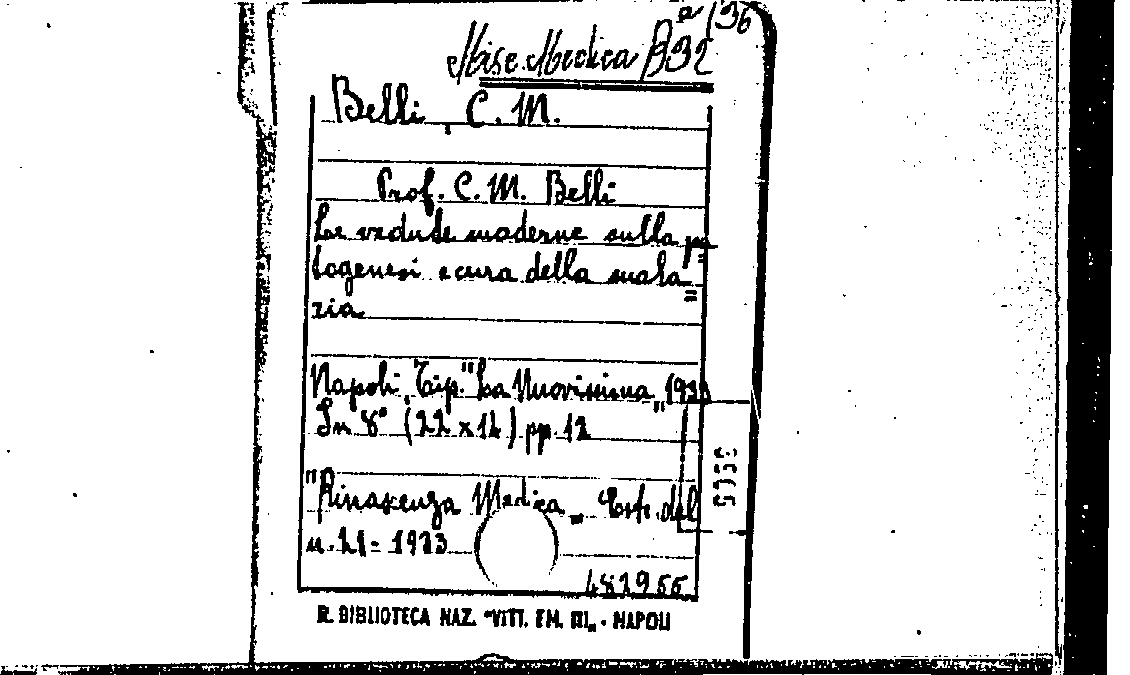 Misc. Medica B 32 a/36
Belli, C. M.
Prof. C. M. Belli
Le vedute moderne sulla pa
togenesi e cura della mala"
ria.
Napoli, Tip. "La Nuovissima" 1933
In 8° (22 x 14) pp. 12
"Rinascenza Medica" Estr. dal
n. 21 = 1933
482955
R. BIBLIOTECA NAZ. "VITT. EM. III" - NAPOLI